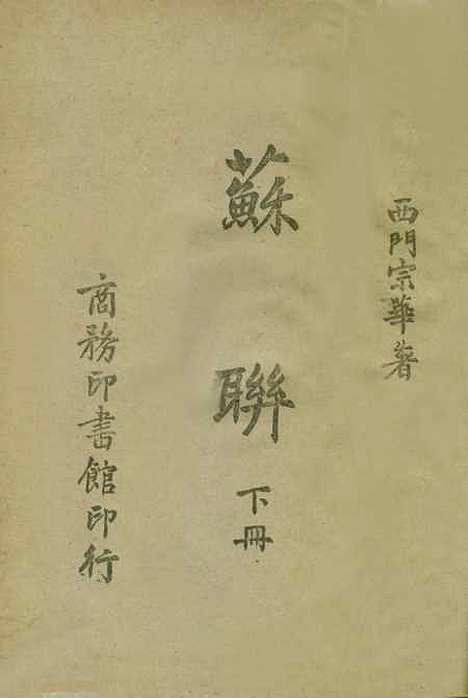 西門宗華著
蘇聯 下冊
商務印書館印行